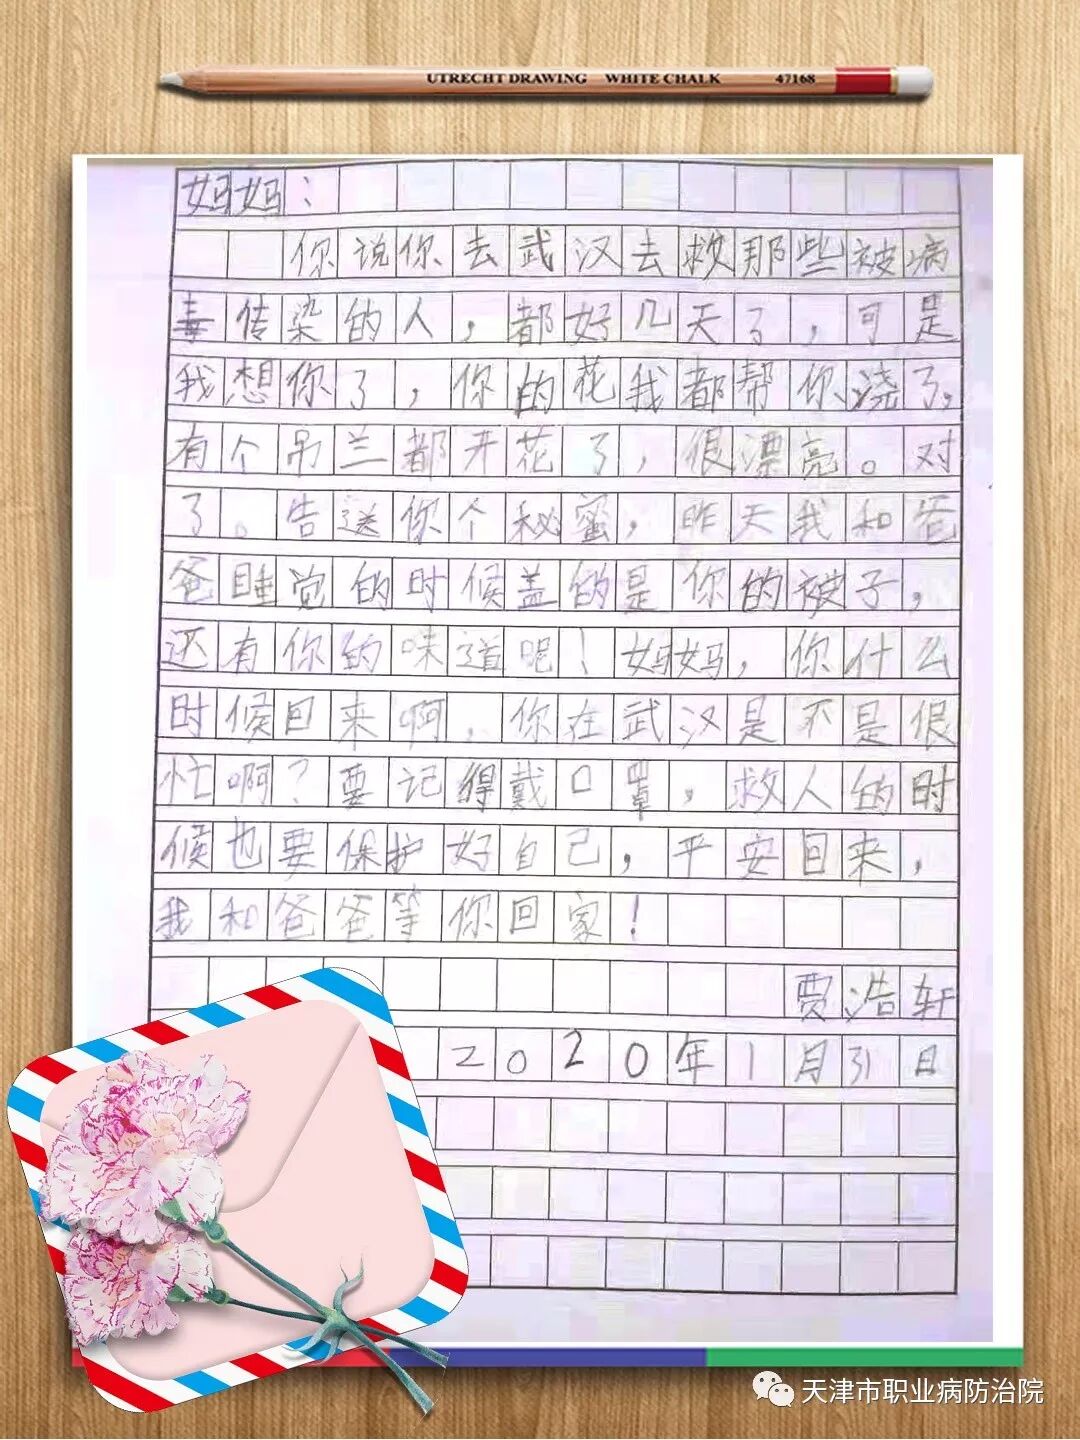 UTRECHT DRAWING WHITE CHALK 47168
妈妈：
你说你去武汉去救那些被病
毒传染的人，都好几天了，可是
我想你了，你的花我都帮你浇了，
有个吊兰都开花了，很漂亮。对
了。告送你个秘蜜，昨天我和爸
爸睡觉的时候盖的是你的被子，
还有你的味道呢！妈妈，你什么
时候回来啊，你在武汉是不是很
忙啊？要记得戴口罩，救人的时
候也要保护好自己，平安回来，
我和爸爸等你回家！
贾浩轩
2020年1月31日
天津市职业病防治院